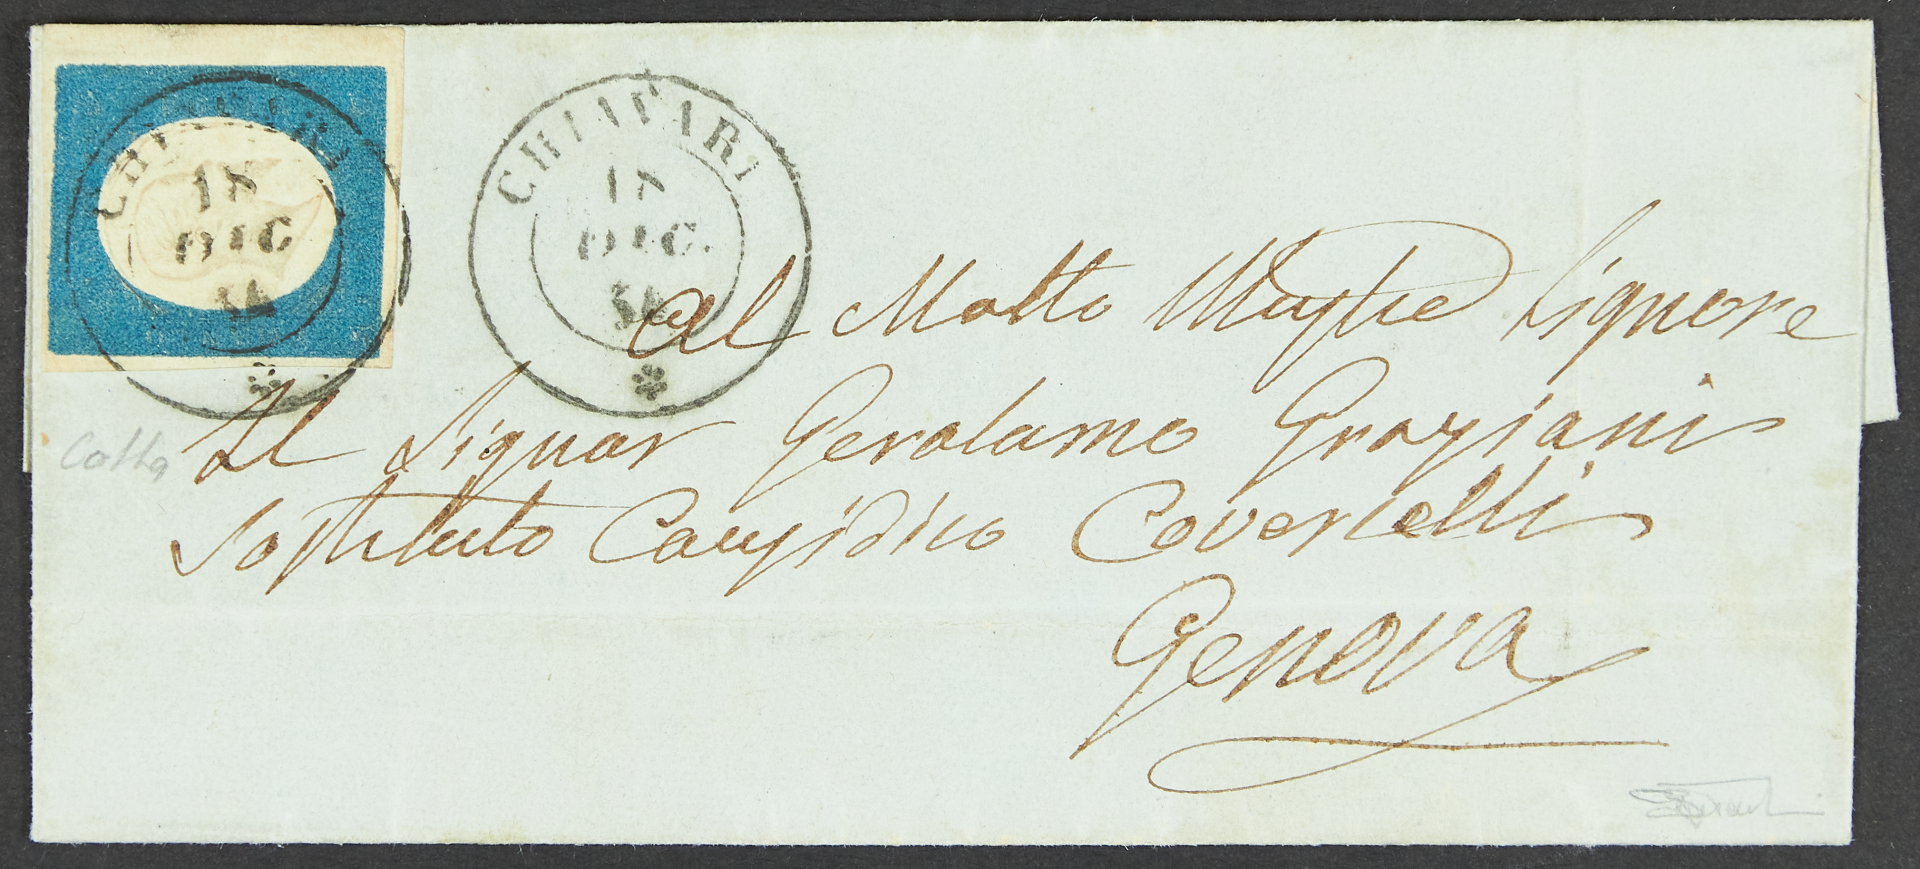 CHIAVARI
18
DIC
54
CHIAVARI
18
DIC.
54
Al Molto Magfco Signore
Il Signor Gerolamo Graziani
Sostituto Causidico Covercelli
Genova